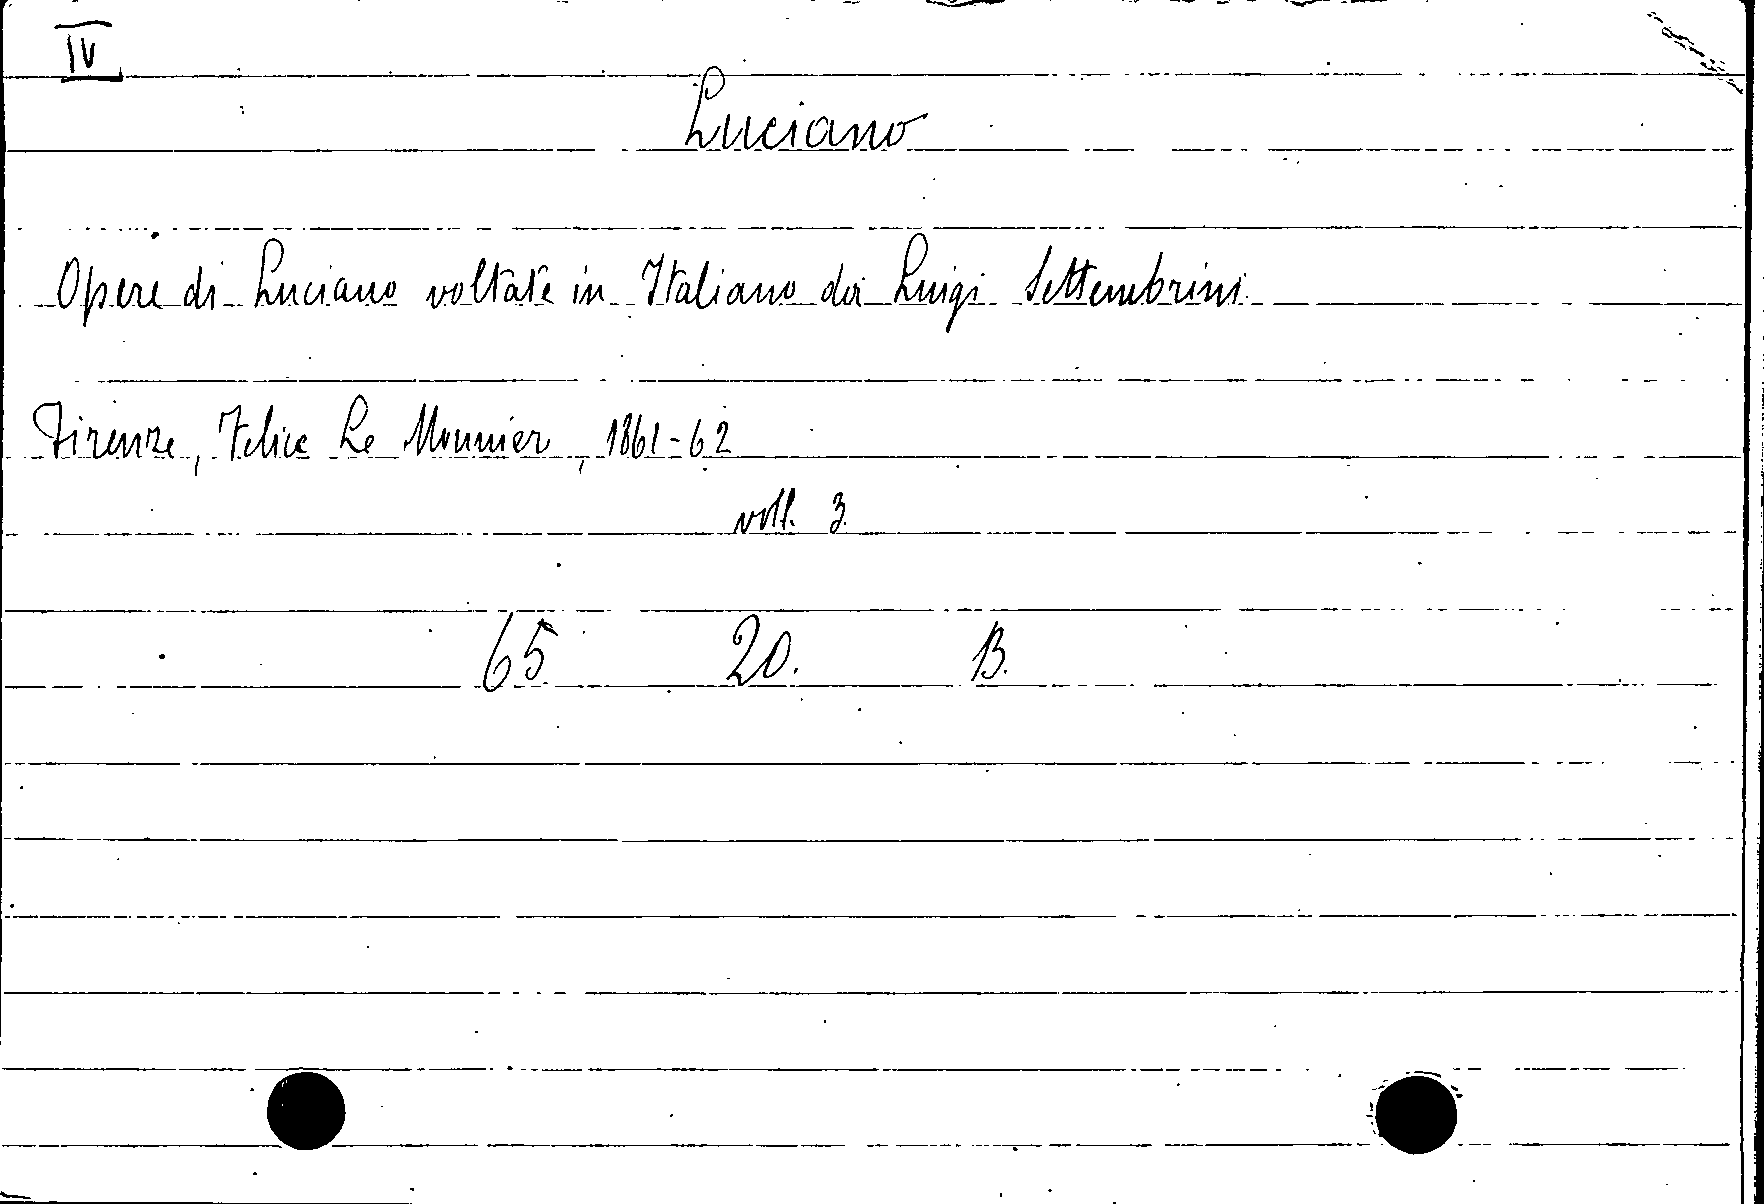 IV
Luciano
Opere di Luciano voltate in Italiano da Luigi Settembrini
Firenze, Felice Le Monnier, 1861-62
voll. 3.
65 20. B.